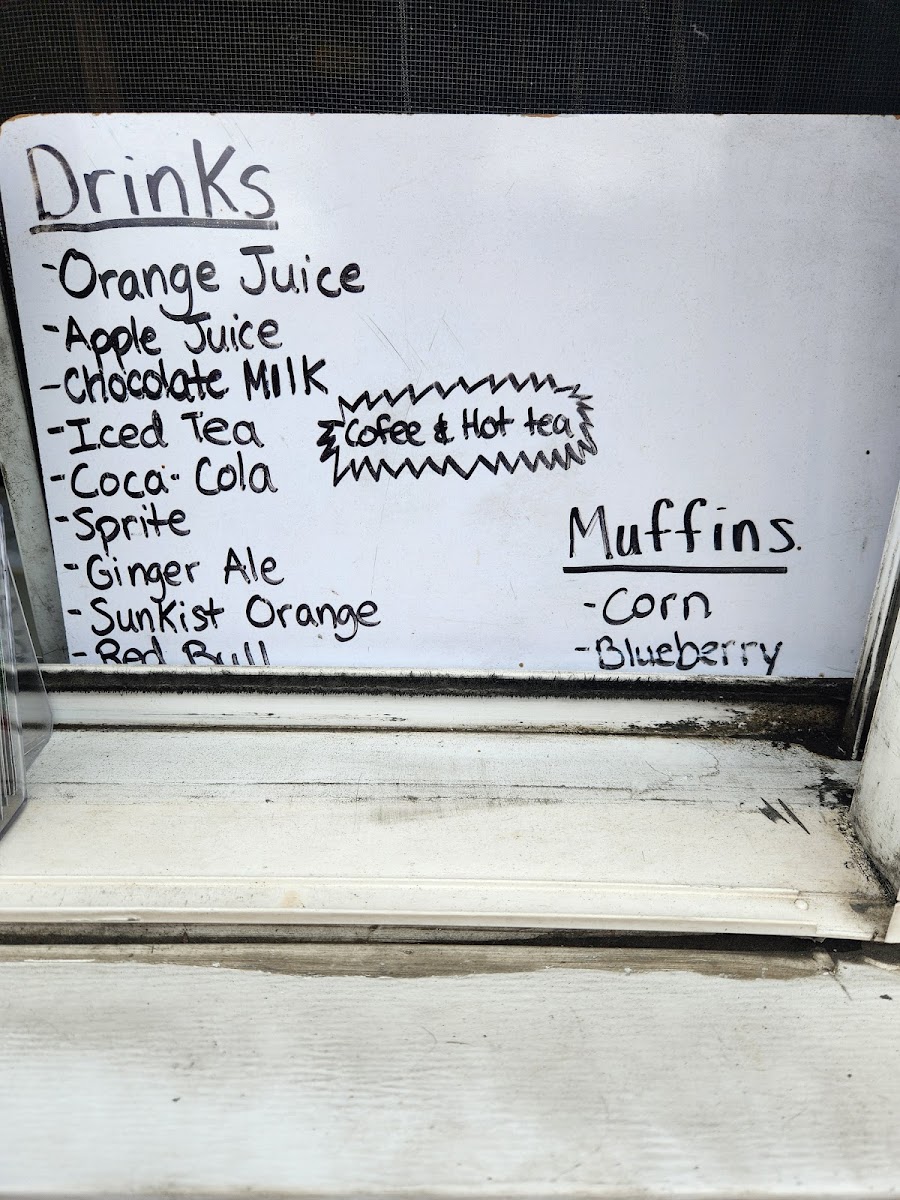 Drinks
-Orange Juice
-Apple Juice
-Chocolate Milk
-Iced Tea
-Coca-Cola
-Sprite
-Ginger Ale
-Sunkist Orange
-Red Bull
Cofee & Hot tea
Muffins.
-Corn
-Blueberry